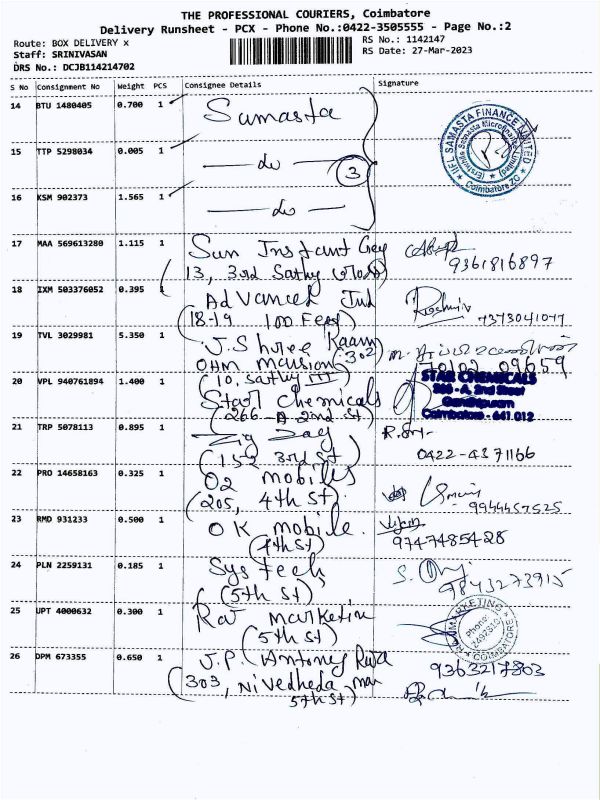 THE PROFESSIONAL COURIERS, Coimbatore
Delivery Runsheet - PCX - Phone No.:0422-3505555 - Page No.:2
Route: BOX DELIVERY x
RS No.: 1142147
Staff: SRINIVASAN
RS Date: 27-Mar-2023
DRS No.: DCJB114214702
S No Consignment No Weight PCS Consignee Details Signature
14 BTU 1480405 0.700 1 Samasta
IIFL SAMASTA FINANCE LIMITED
(Erstwhile Samasta Microfinance Limited)
Coimbatore ZO
15 TTP 5298034 0.005 1 — do —
3
16 KSM 902373 1.565 1 — do —
17 MAA 569613280 1.115 1 Sun Instant
13, 3rd Sathy
9361816897
18 IXM 503376052 0.395 1 Advanced Ind
18-19 100 Feet
7373041077
19 TVL 3029981 5.350 1 J. Shree Raam
OHM mansion (302)
10, Sathy
70102 09659
20 VPL 940761894 1.400 1 Star Chemicals
(266-A 2nd St)
STAR CHEMICALS
266 - A, 2nd Street
Gandhipuram
Coimbatore - 641 012
21 TRP 5078113 0.895 1 Zig Zag
(152 3rd St)
0422-4371166
22 PRO 14658163 0.325 1 O2 mobiles
(205, 4th St)
9944457525
23 RMD 931233 0.500 1 OK mobile.
(4th St)
9747485428
24 PLN 2259131 0.185 1 Sys Tech
(5th St)
9843273915
25 UPT 4000632 0.300 1 Raj Marketin
(5th St)
MARKETING
Phone:
COIMBATORE
26 DPM 673355 0.650 1 J.P. (Antoney
303, Nivedheda
5th St)
9363217803